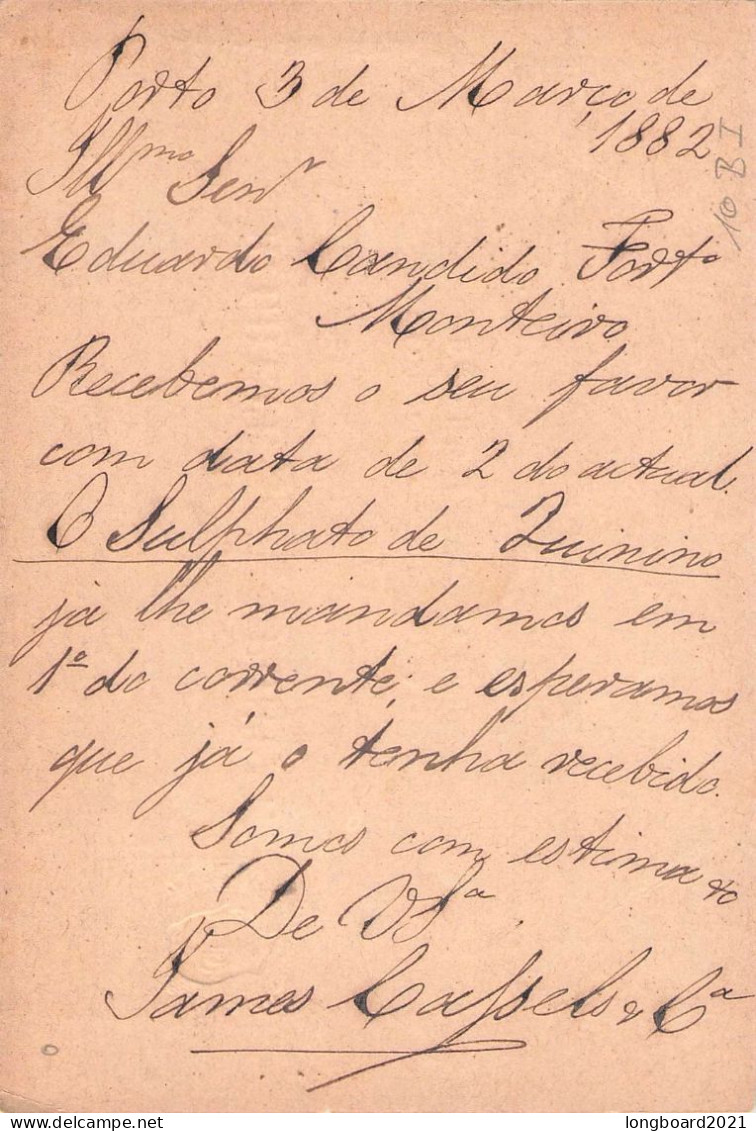 Porto 3 de Março de
1882
Illmo Senr
Eduardo Candido Porto
Monteiro
Recebemos o seu favor
com data de 2 do actual.
O Sulphato de Quinino
já lhe mandamos em
1º do corrente, e esperamos
que já o tenha recebido.
Somos com estima &c
De VSª
James Cassels & Cª
10 B I
longboard2021